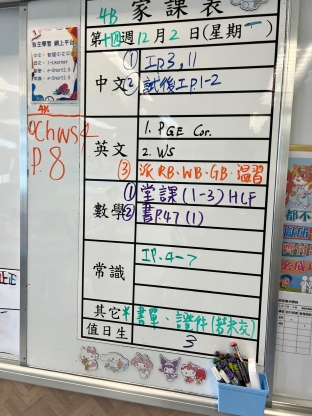 4B 家課表
第十四週12月2日(星期一)
中文
① I.P.3, 11
② 試後I.P.1-2
英文
1. PGE Cor.
2. WS
③ 派 RB、WB、GB、溫習
數學
① 堂課(1-3) HCF
② 書P.47 (1)
常識
I.P. 4-7
其它
* 書單、證件(若未交)
值日生
3
自主學習 網上平台
4K
P. 8